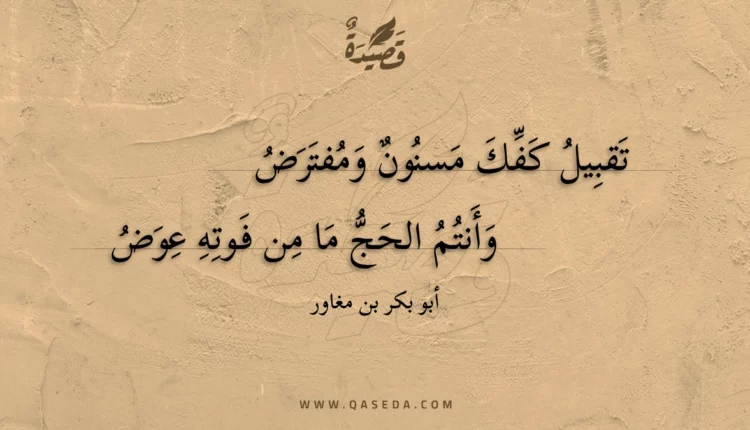 قَصِيدَةٌ
تَقبِيلُ كَفِّكَ مَسنُونٌ وَمُفتَرَضُ
وَأَنتُمُ الحَجُّ مَا مِن فَوتِهِ عِوَضُ
أبو بكر بن مغاور
WWW.QASEDA.COM